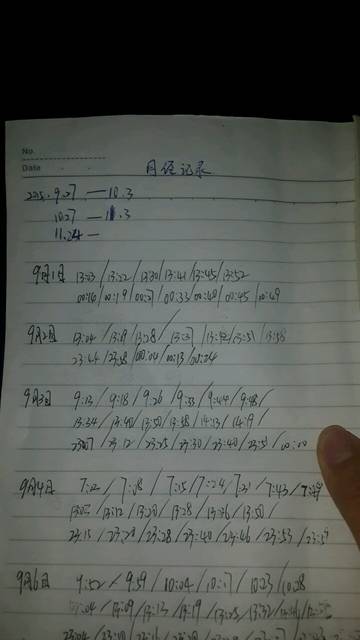 No.
Date
月经记录
2015.9.27 — 10.3
10.27 — 11.3
11.24 —
9月1日 13:13/13:22/13:30/13:41/13:45/13:52
00:16/00:19/00:27/00:33/00:40/00:45/00:49
9月2日 13:04/13:19/13:28/13:37/13:42/13:51/13:58
23:44/23:58/00:04/00:13/00:24
9月3日 9:13/9:18/9:26/9:33/9:44/9:48/
13:34/13:40/13:50/13:58/14:13/14:19/
23:07/23:12/23:25/23:30/23:40/23:51/00:00
9月4日 7:12/7:08/7:15/7:24/7:31/7:43/
13:05/13:12/13:20/13:28/13:36/13:50/
23:13/23:20/23:28/23:40/23:46/23:53/23:57
9月6日 9:52/9:59/10:04/10:17/10:23/10:28
13:04/13:09/13:13/13:19/13:25/13:32